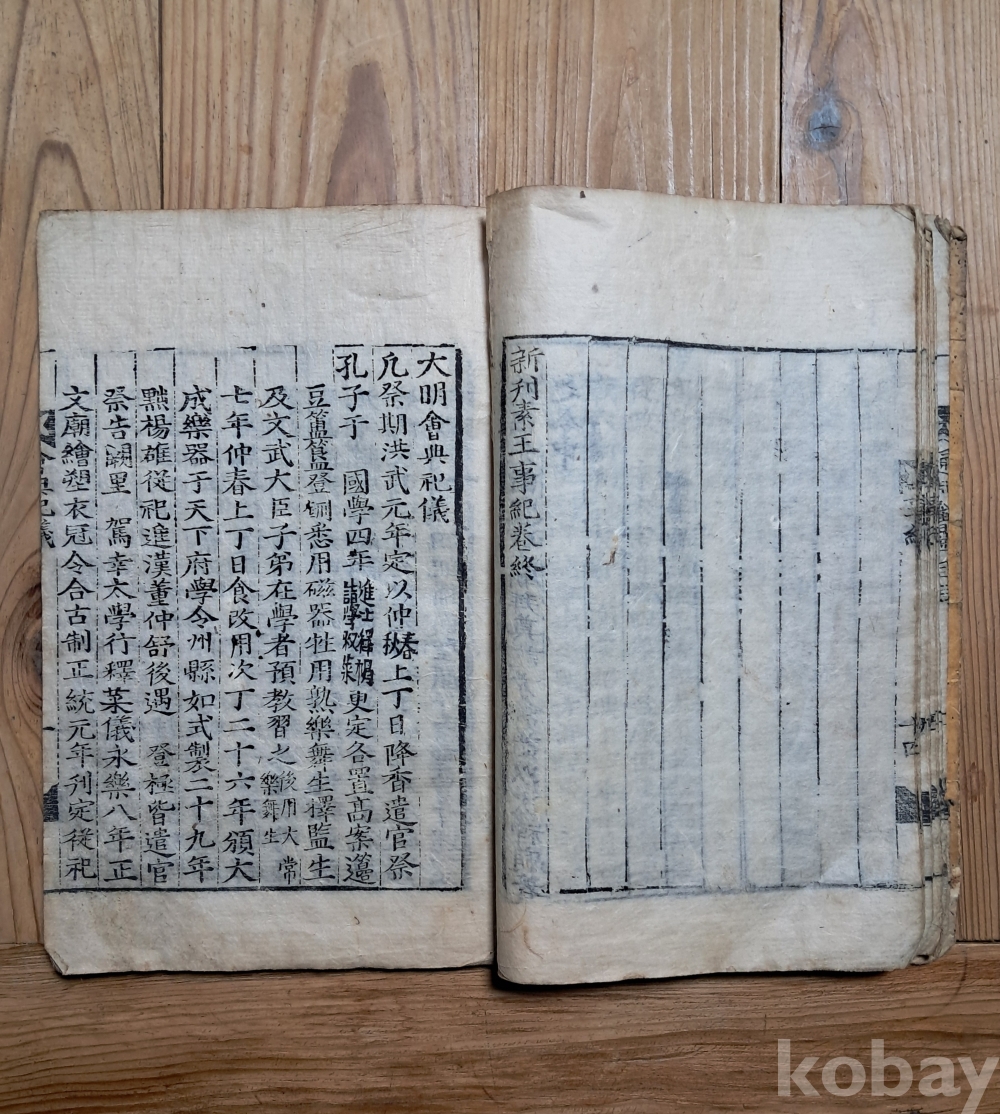 新刊素王事紀卷終
十四
大明會典祀儀
凢祭期洪武元年定以仲春秋上丁日降香遣官祭
孔子于 國學四年進士釋褐詣學釋菜更定各置高案籩
豆簠簋登鉶悉用磁器牲用熟樂舞生擇監生
及文武大臣子弟在學者預教習之後用大常樂舞生
七年仲春上丁日食改用次丁二十六年頒大
成樂器于天下府學令州縣如式製二十九年
黜楊雄從祀進漢董仲舒後遇 登極皆遣官
祭告闕里 駕幸太學行釋菜儀永樂八年正
文廟繪塑衣冠令合古制正統元年刊定從祀
一
kobay